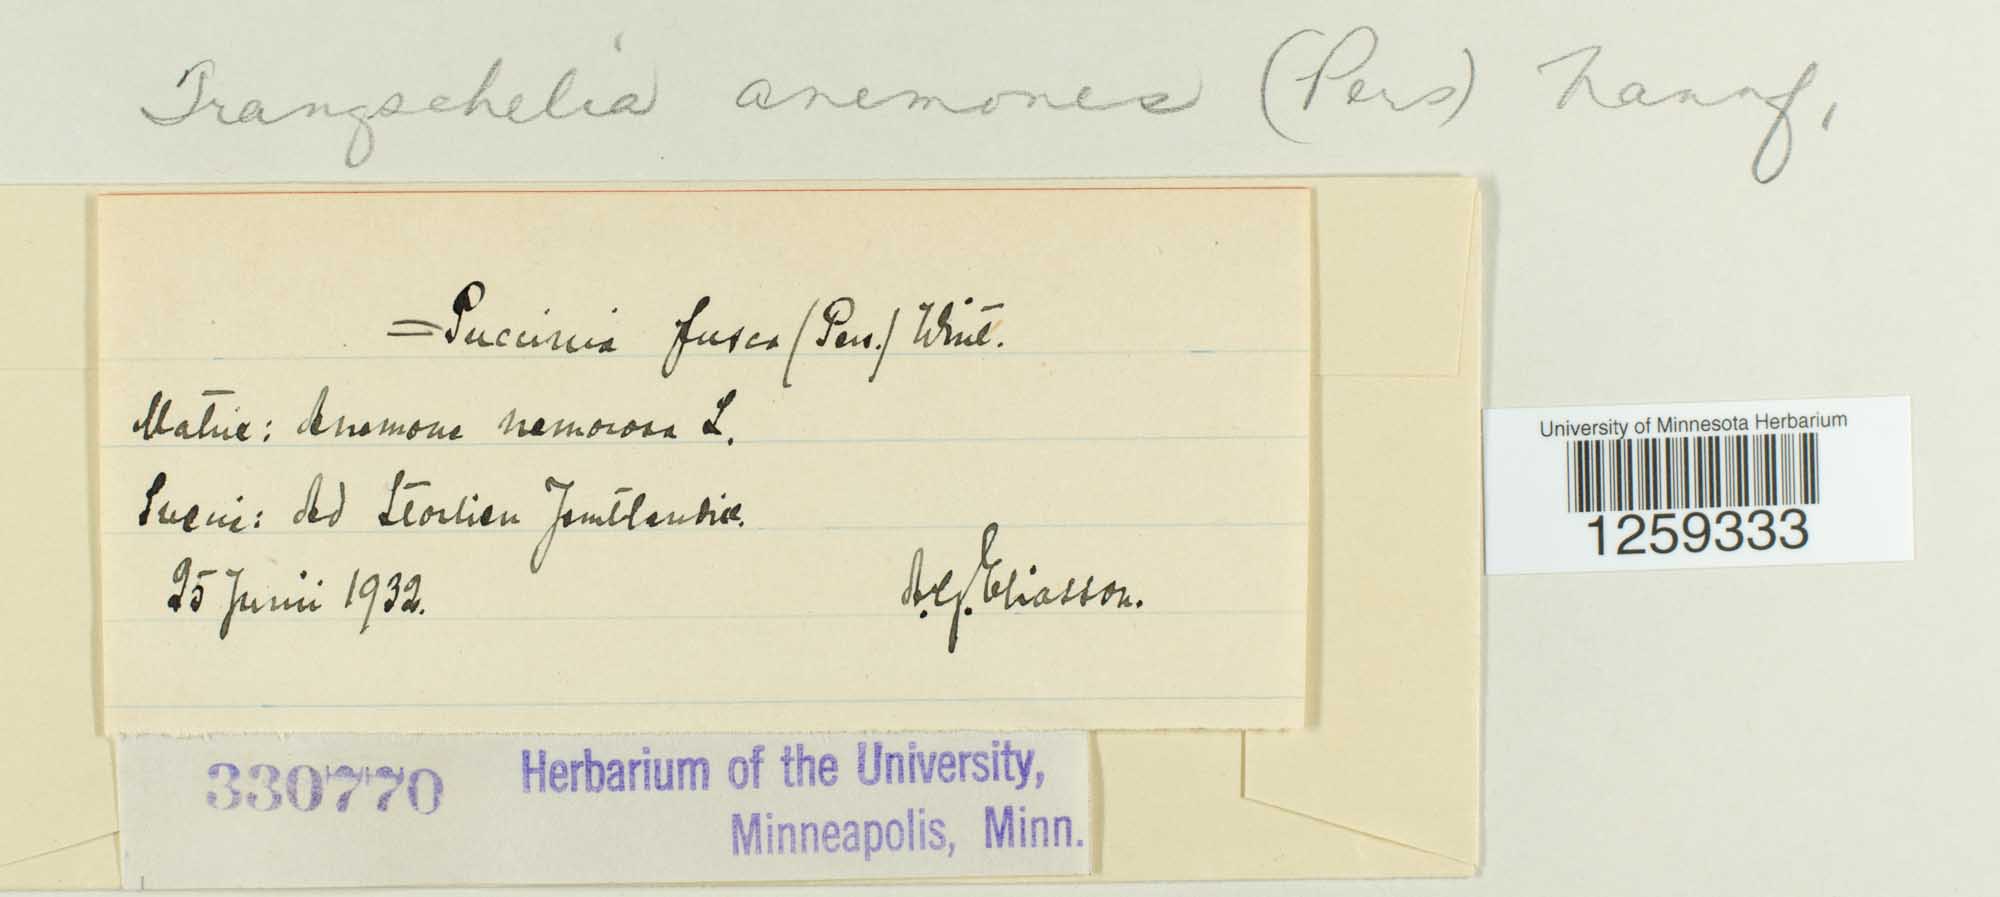 Tranzschelia anemones (Pers) Nannf.
= Puccinia fusca (Pers.) Wint.
Matrix: Anemone nemorosa L.
Sueciæ: Ad Storlien Jemtlandiæ.
25 Junii 1932. A.G. Eliasson.
330770 Herbarium of the University,
Minneapolis, Minn.
University of Minnesota Herbarium
1259333